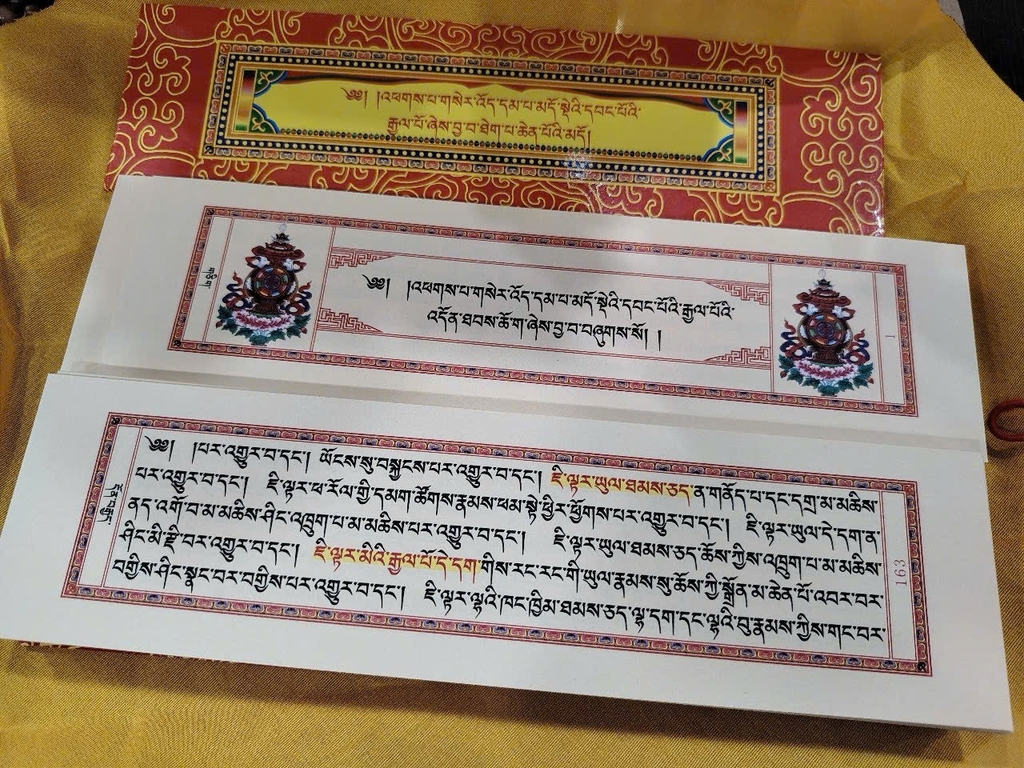 ༄༅། །འཕགས་པ་གསེར་འོད་དམ་པ་མདོ་སྡེའི་དབང་པོའི་
རྒྱལ་པོ་ཞེས་བྱ་བ་ཐེག་པ་ཆེན་པོའི་མདོ།
གཅིག
༄༅། །འཕགས་པ་གསེར་འོད་དམ་པ་མདོ་སྡེའི་དབང་པོའི་རྒྱལ་པོའི་
འདོན་ཐབས་ཆོ་ག་ཞེས་བྱ་བ་བཞུགས་སོ། །
1
༄༅། །པར་འགྱུར་བ་དང༌། ཡོངས་སུ་བསྐྱངས་པར་འགྱུར་བ་དང༌། ཇི་ལྟར་ཡུལ་ཐམས་ཅད་ན་གནོད་པ་དང་དགྲ་མ་མཆིས་
པར་འགྱུར་བ་དང༌། ཇི་ལྟར་ཕ་རོལ་གྱི་དམག་ཚོགས་རྣམས་ཕམ་སྟེ་ཕྱིར་ཕྱོགས་པར་འགྱུར་བ་དང༌། ཇི་ལྟར་ཡུལ་དེ་དག་ན་
ནད་འགོ་བ་མ་མཆིས་ཤིང་འཁྲུག་པ་མ་མཆིས་པར་འགྱུར་བ་དང༌། ཇི་ལྟར་ཡུལ་ཐམས་ཅད་ཆོས་ཀྱིས་འཁྲུག་པ་མ་མཆིས་
ཤིང་མི་རྫི་བར་འགྱུར་བ་དང༌། ཇི་ལྟར་མིའི་རྒྱལ་པོ་དེ་དག་གིས་རང་རང་གི་ཡུལ་རྣམས་སུ་ཆོས་ཀྱི་སྒྲོན་མ་ཆེན་པོ་འབར་བར་
བགྱིས་ཤིང་སྣང་བར་བགྱིས་པར་འགྱུར་བ་དང༌། ཇི་ལྟར་ལྷའི་ཁང་ཁྱིམ་ཐམས་ཅད་ལྷ་དག་དང་ལྷའི་བུ་རྣམས་ཀྱིས་གང་བར་
163